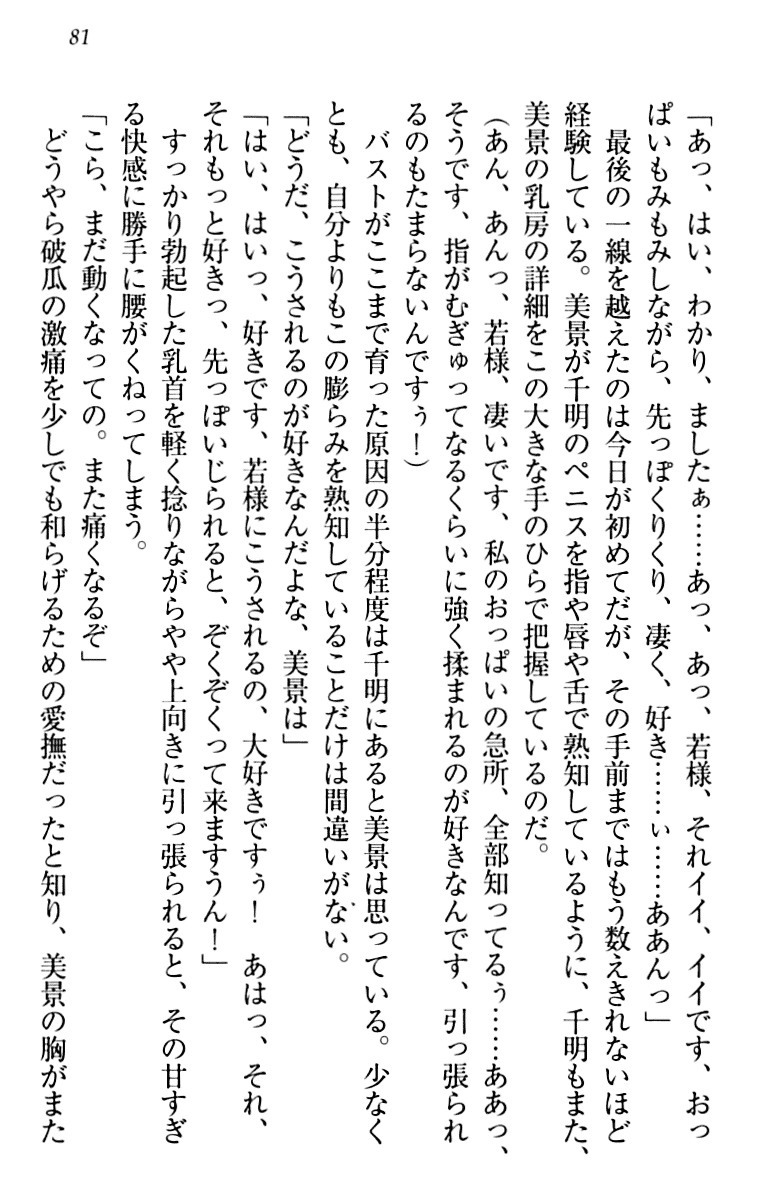 81
「あっ、はい、わかり、ましたぁ……あっ、あっ、若様、それイイ、イイです、おっ
ぱいもみもみしながら、先っぽくりくり、凄く、好き……ぃ……ああんっ」
最後の一線を越えたのは今日が初めてだが、その手前まではもう数えきれないほど
経験している。美景が千明のペニスを指や唇や舌で熟知しているように、千明もまた、
美景の乳房の詳細をこの大きな手のひらで把握しているのだ。
（あん、あんっ、若様、凄いです、私のおっぱいの急所、全部知ってるぅ……ああっ、
そうです、指がむぎゅってなるくらいに強く揉まれるのが好きなんです、引っ張られ
るのもたまらないんですぅ！）
バストがここまで育った原因の半分程度は千明にあると美景は思っている。少なく
とも、自分よりもこの膨らみを熟知していることだけは間違いがない。
「どうだ、こうされるのが好きなんだよな、美景は」
「はい、はいっ、好きです、若様にこうされるの、大好きですぅ！　あはっ、それ、
それもっと好きっ、先っぽいじられると、ぞくぞくって来ますうん！」
すっかり勃起した乳首を軽く捻りながらやや上向きに引っ張られると、その甘すぎ
る快感に勝手に腰がくねってしまう。
「こら、まだ動くなっての。また痛くなるぞ」
どうやら破瓜の激痛を少しでも和らげるための愛撫だったと知り、美景の胸がまた